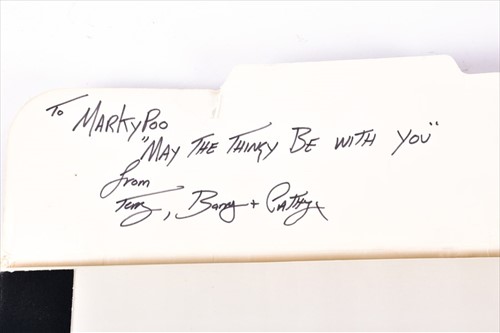 To MarkyPoo
"May The Thingy Be with You"
from
Terry, Barry + Cathy